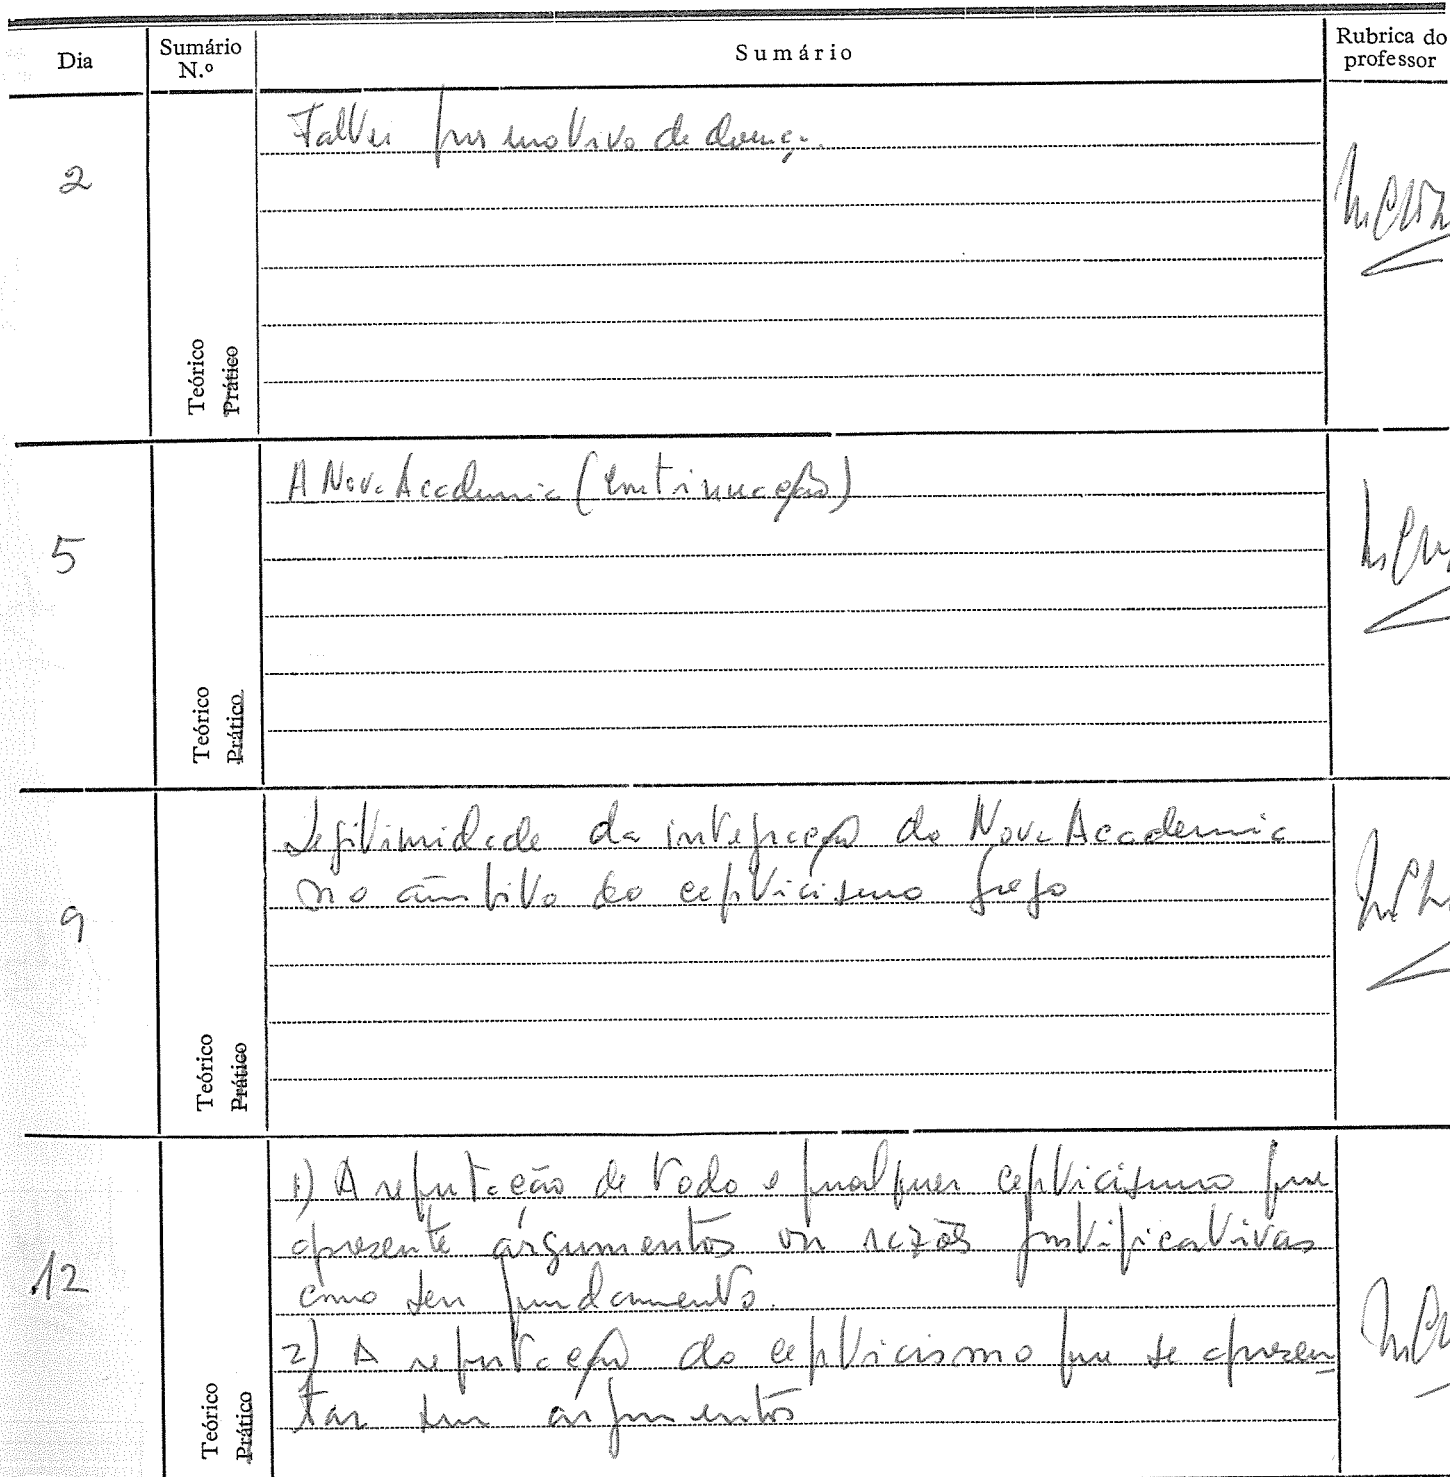 Dia
Sumário N.º
Sumário
Rubrica do professor
2
Teórico
Prático
Faltei por motivo de doença.
5
Teórico
Prático
A Nova Academia (continuação)
9
Teórico
Prático
Legitimidade da integração da Nova Academia
no âmbito do cepticismo grego
12
Teórico
Prático
1) A refutação de todo e qualquer cepticismo que
apresente argumentos ou razões justificativas
como seu fundamento.
2) A refutação do cepticismo que se apresen
tar sem argumentos